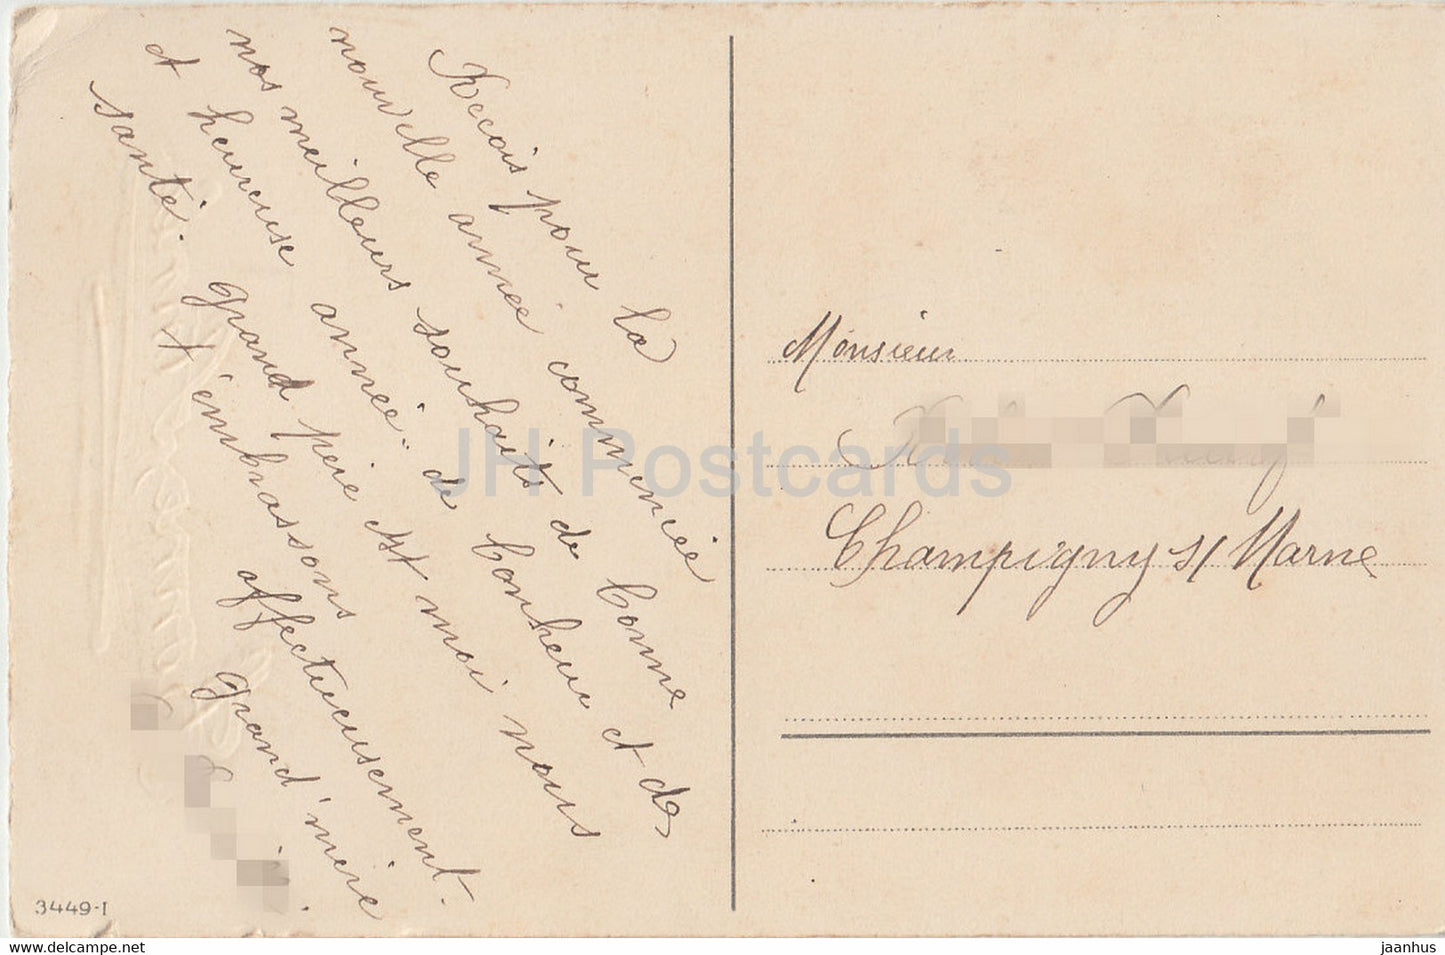 Recois pour la
nouvelle année commencée
nos meilleurs souhaits de bonne
et heureuse année. de bonheur et de
santé. grand père et moi nous
t'embrassons
affectueusement.
grand'mère
Monsieur
Champigny s/ Marne
3449-1
JH Postcards
www.delcampe.net
jaanhus